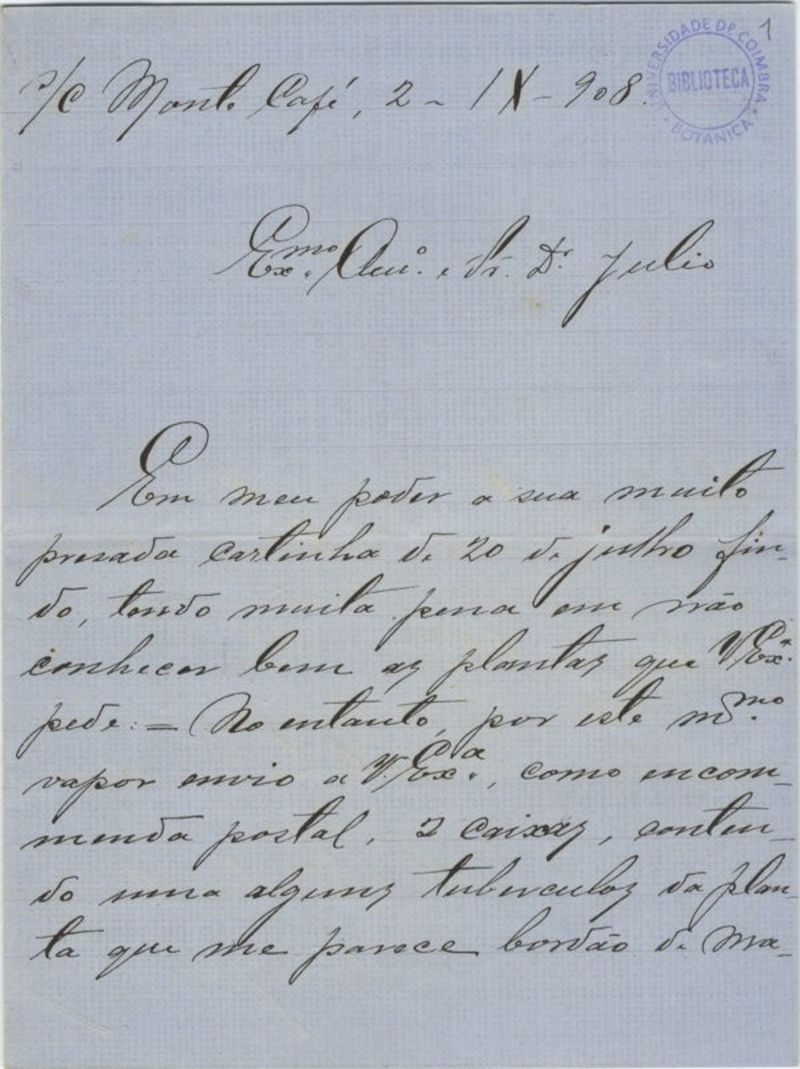 1
UNIVERSIDADE DE COIMBRA
BIBLIOTECA
BOTÂNICA
S/C Monte Café, 2 - IX - 908.
Exmo. Amo. e Sr. Dr. Julio
Em meu poder a sua muito
presada cartinha de 20 de julho fin-
do, tendo muita pena em não
conhecer bem as plantas que V. Exa.
pede: = No entanto, por este mmo.
vapor envio a V. Exa., como encom-
menda postal, 2 caixas, conten-
do uma alguns tuberculos da plan-
ta que me parece bordão de Ma-